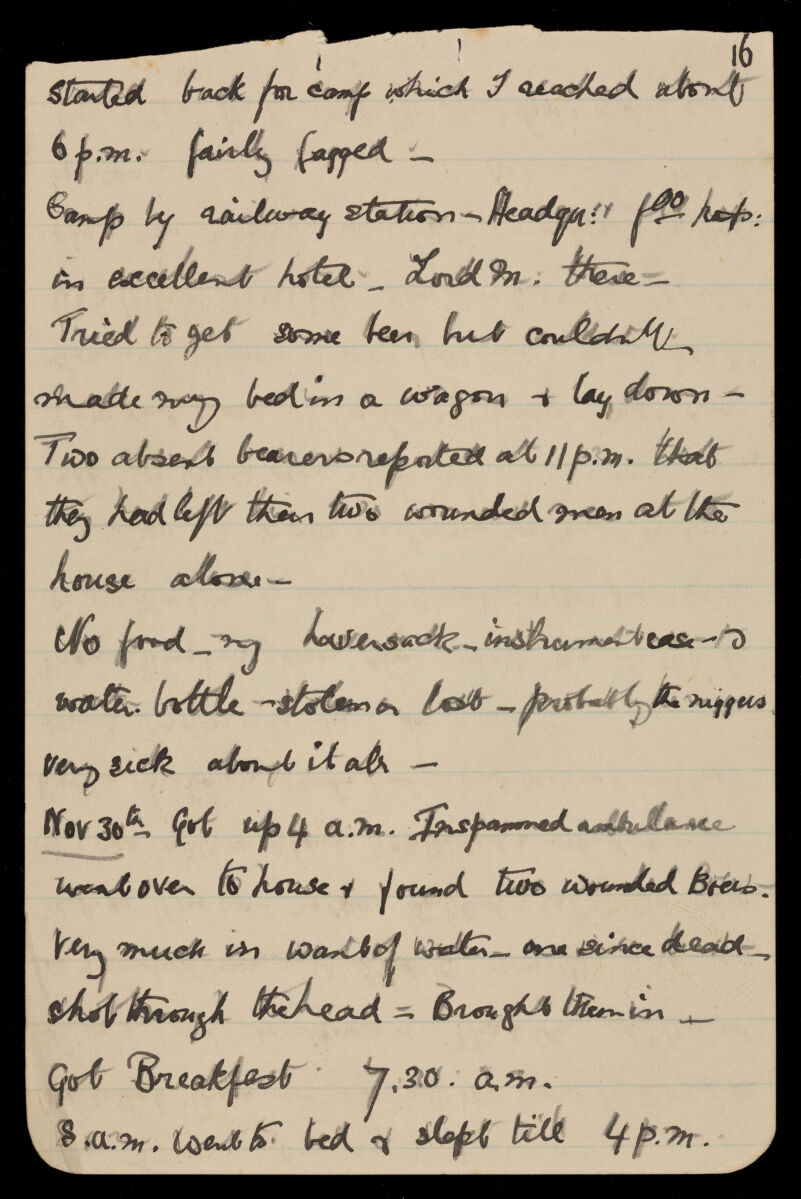 16
started back for camp which I reached about
6 p.m. fairly fagged –
Camp by railway station – Headqrs: for hosp:
in excellent hotel – Lord M. there –
Tried to get some beer but couldn't
made my bed in a wagon & lay down –
Two absent bearers reported at 11 p.m. that
they had left their two wounded men at the
house alone –
No food – my haversack – instrument case – &
water bottle – stolen or lost – probably the niggers
very sick about it all –
Nov 30th Got up 4 a.m. Inspanned ambulance
went over to house & found two wounded Boers.
Very much in want of water – one since dead –
shot through the head = Brought them in –
Got Breakfast 7.30. a.m.
8.a.m. went to bed & slept till 4 p.m.